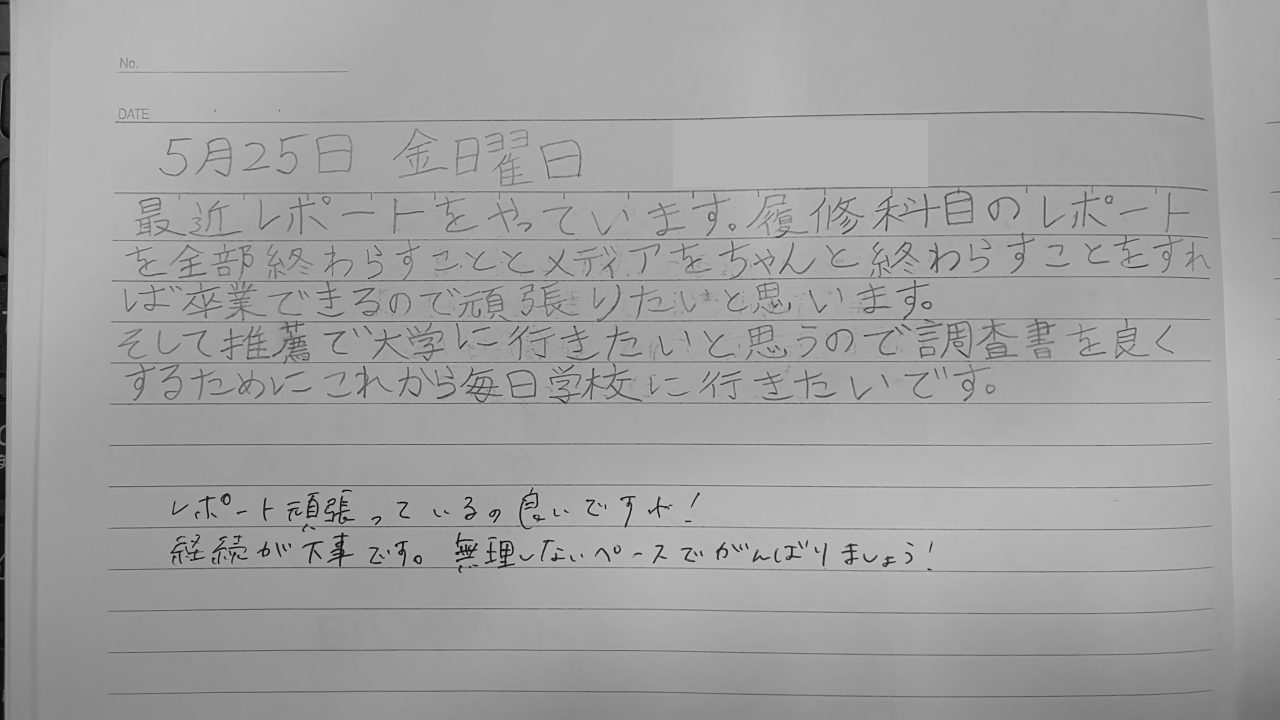 No.
DATE
5月25日 金曜日
最近レポートをやっています。履修科目のレポート
を全部終わらすこととメディアをちゃんと終わらすことをすれ
ば卒業できるので頑張りたいと思います。
そして推薦で大学に行きたいと思うので調査書を良く
するためにこれから毎日学校に行きたいです。
レポート頑張っているの良いですね!
経続が大事です。無理しないペースでがんばりましょう!